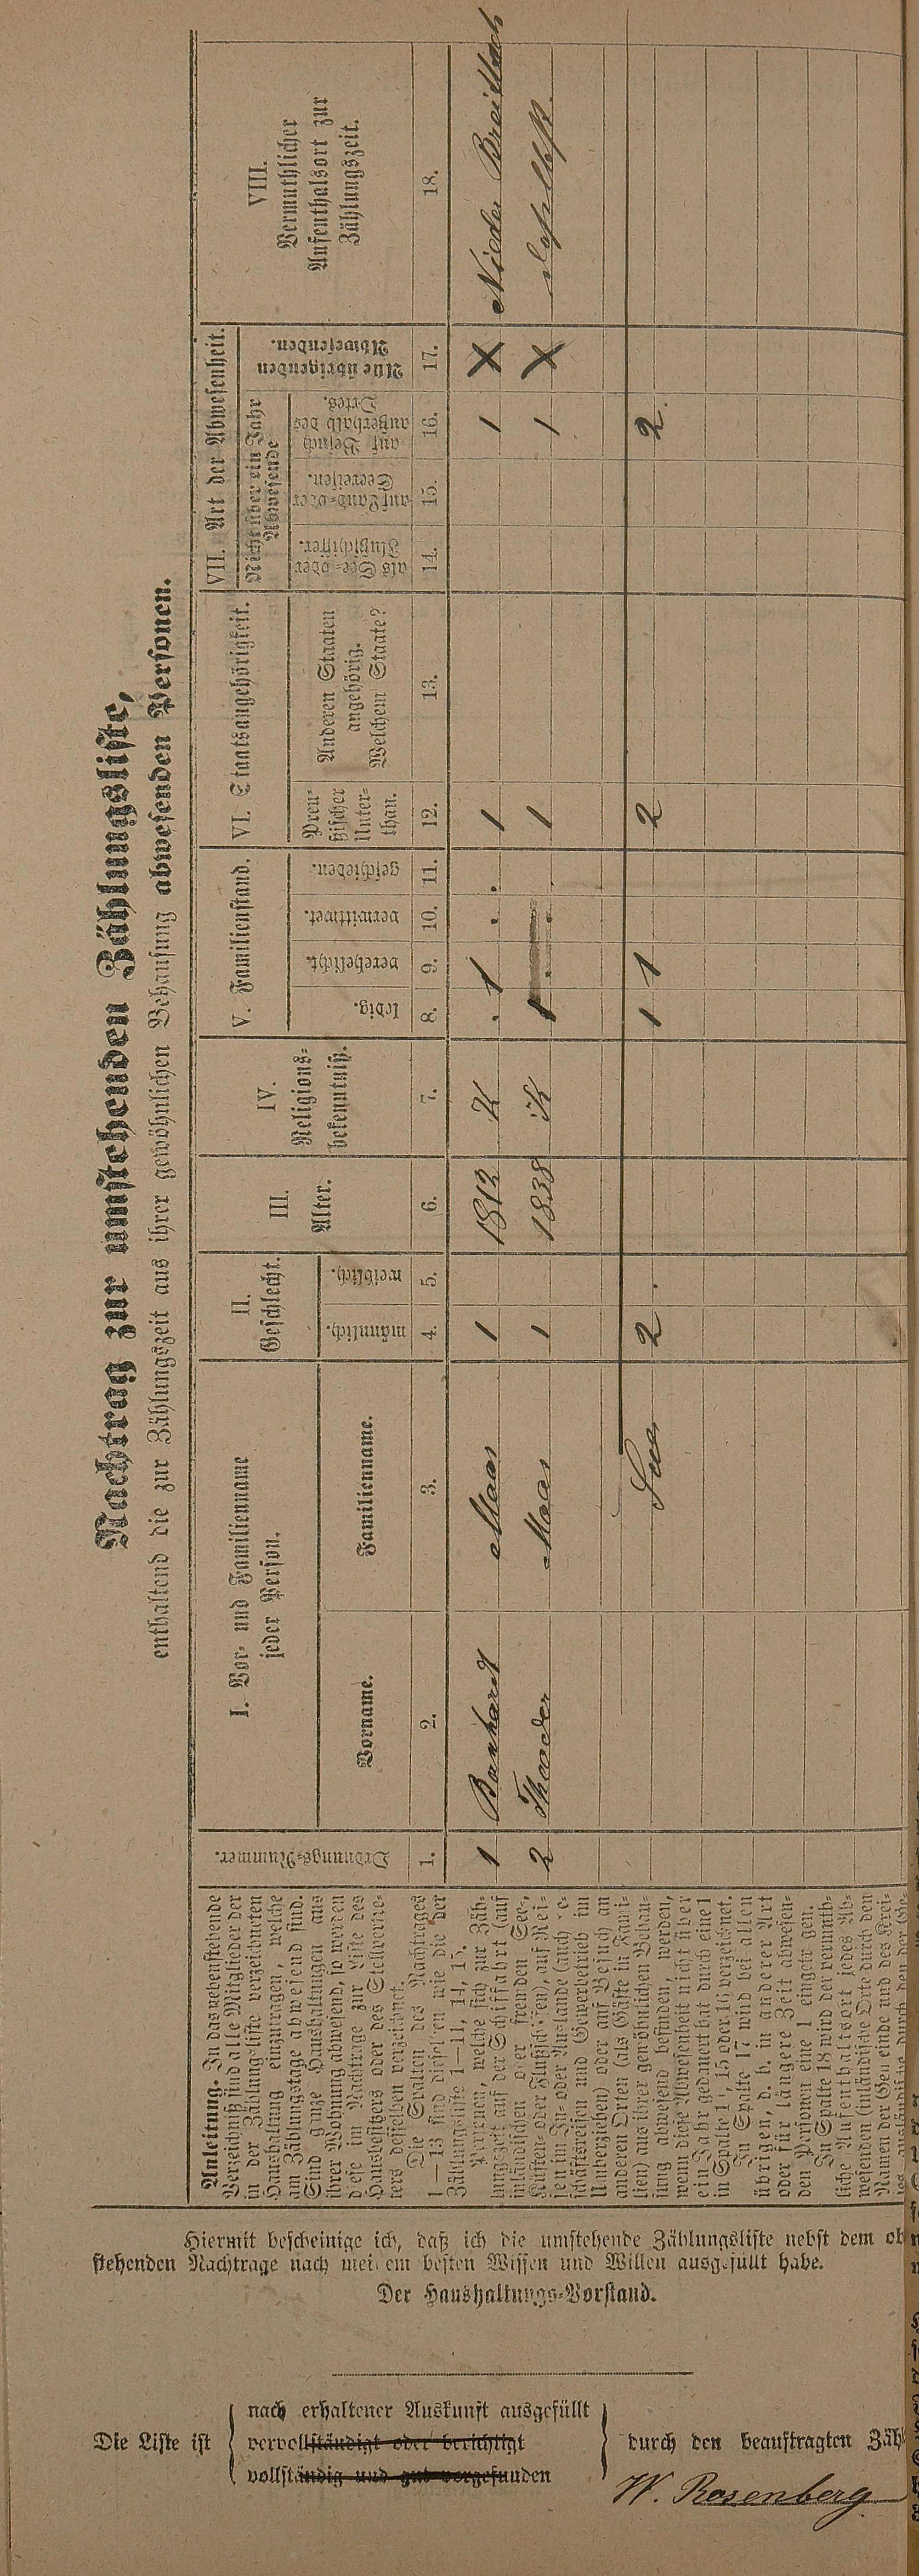 Nachtrag zur umstehenden Zählungsliste,
enthaltend die zur Zählungszeit aus ihrer gewöhnlichen Behausung abwesenden Personen.
Anleitung. In das nebenstehende
Verzeichniß sind alle Mitglieder der
in der Zählungsliste verzeichneten
Haushaltung einzutragen, welche
am Zählungstage abwesend sind.
Sind ganze Haushaltungen aus
ihrer Wohnung abwesend, so werden
diese im Nachtrage zur Liste des
Hausbesitzers oder des Stellvertre-
ters desselben verzeichnet.
Die Spalten des Nachtrages
1—13 sind dieselben wie die der
Zählungsliste 1—11, 14, 15.
Personen, welche sich zur Zäh-
lungszeit auf der Schifffahrt (auf
inländischen oder fremden See-,
Küsten- oder Flußschiffen), auf Rei-
sen im In- oder Auslande (auch Ge-
schäftsreisen und Gewerbetrieb im
Umherziehen) oder auf Besuch an
anderen Orten (als Gäste in Fami-
lien) aus ihrer gewöhnlichen Behau-
sung abwesend befinden, werden,
wenn diese Abwesenheit nicht über
ein Jahr gedauert hat durch eine 1
in Spalte 14, 15 oder 16 verzeichnet.
In Spalte 17 wird bei allen
übrigen, d. h. in anderer Art
oder für längere Zeit abwesen-
den Personen eine 1 eingetragen.
In Spalte 18 wird der vermuth-
liche Aufenthaltsort jedes Ab-
wesenden (inländische Orte durch den
Namen der Gemeinde und des Krei-
ses, ausländische durch den der Ge-
Ordnungs-Nummer.
I. Vor- und Familienname
jeder Person.
Vorname.
Familienname.
II.
Geschlecht.
männlich.
weiblich.
III.
Alter.
IV.
Religions-
bekenntniß.
V. Familienstand.
ledig.
verehelicht.
verwittwet.
geschieden.
VI. Staatsangehörigkeit.
Preu-
ßischer
Unter-
than.
Anderen Staaten
angehörig.
Welchem Staate?
VII. Art der Abwesenheit.
Nicht über ein Jahr
Abwesende
als See- oder
Flußschiffer.
auf Land- oder
Seereisen.
auf Besuch
außerhalb des
Ortes.
Alle übrigen
Abwesenden.
VIII.
Vermuthlicher
Aufenthalsort zur
Zählungszeit.
1. 2. 3. 4. 5. 6. 7. 8. 9. 10. 11. 12. 13. 14. 15. 16. 17. 18.
1 Maas 1 1812 K . 1 . . 1 1 X Nieder Breitbach
2 Maas 1 1838 K 1 . . 1 1 X daselbst
2 . 1 1 2 2
Hiermit bescheinige ich, daß ich die umstehende Zählungsliste nebst dem ob
stehenden Nachtrage nach meinem besten Wissen und Willen ausgefüllt habe.
Der Haushaltungs-Vorstand.
Die Liste ist
nach erhaltener Auskunft ausgefüllt
vervollständigt oder berichtigt
vollständig und gut vorgefunden
durch den beauftragten Zäh
W. Rosenberg